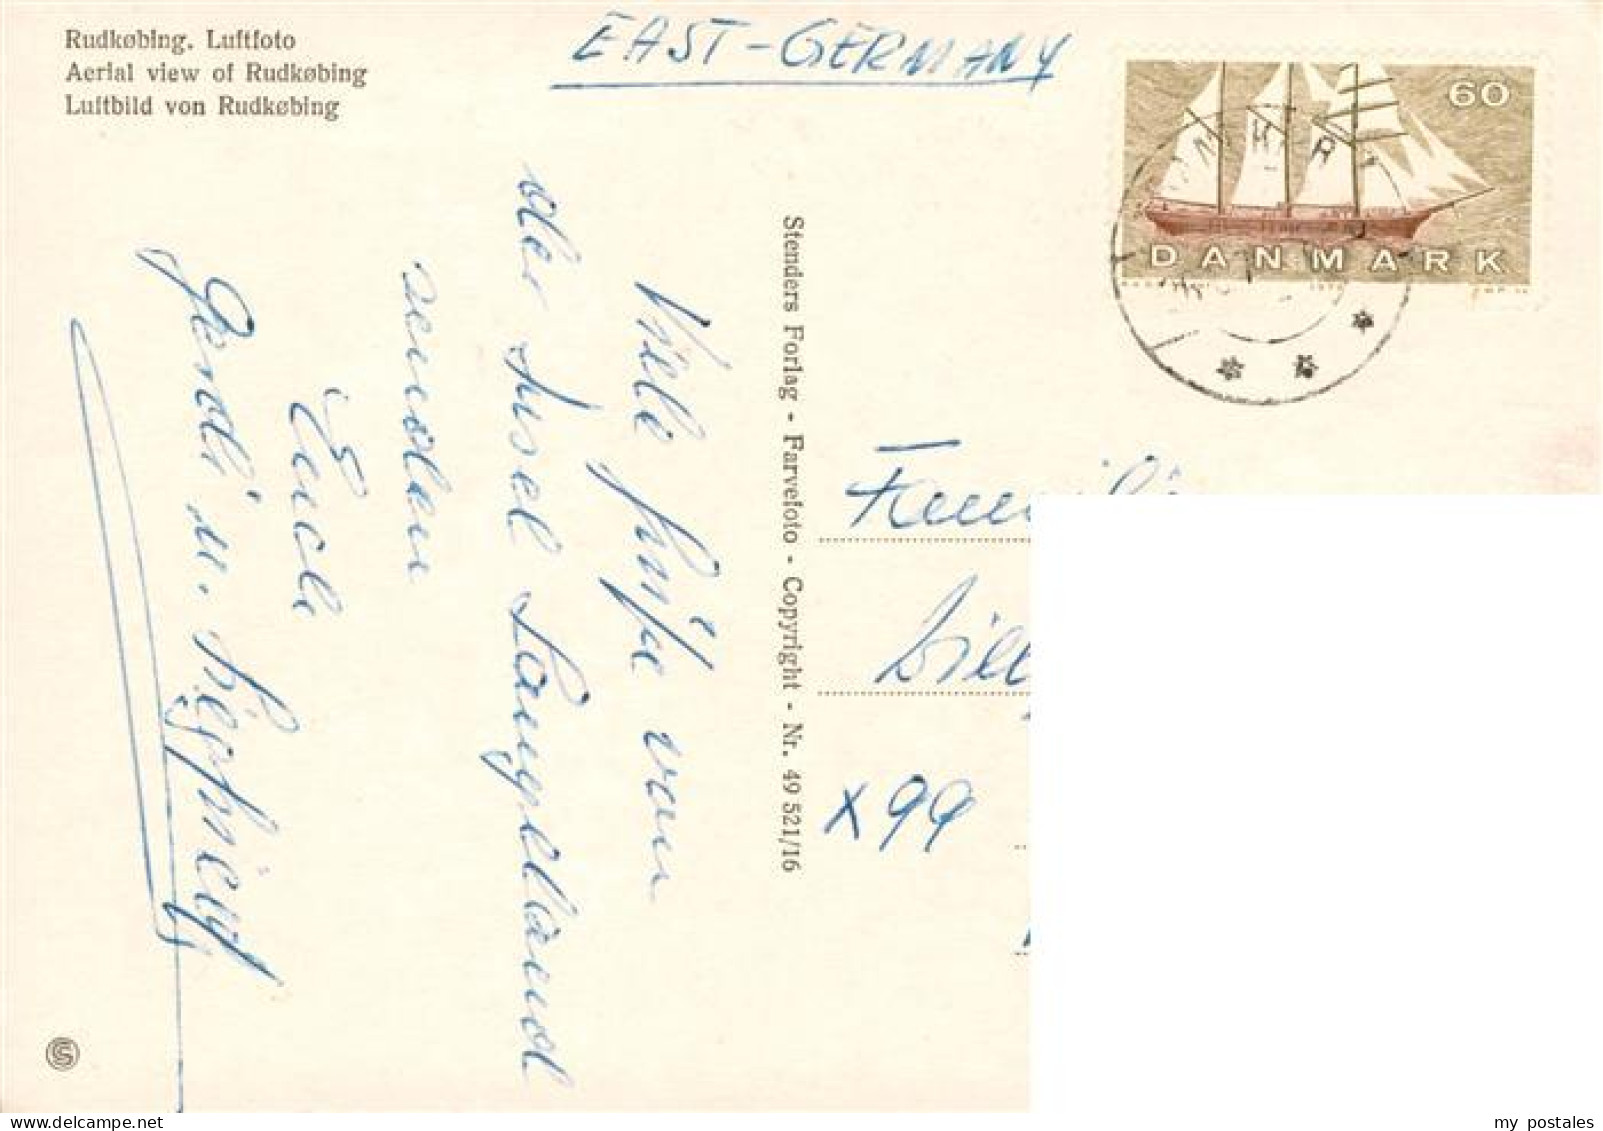 Rudkøbing. Luftfoto
Aerial view of Rudkøbing
Luftbild von Rudkøbing
EAST-GERMANY
60
DANMARK
Viele Grüße von
der Insel Langelland
senden
Euch
Gerdi u. Siegfried
Stenders Forlag - Farvefoto - Copyright - Nr. 49 521/16
Famili
x 99
my postales